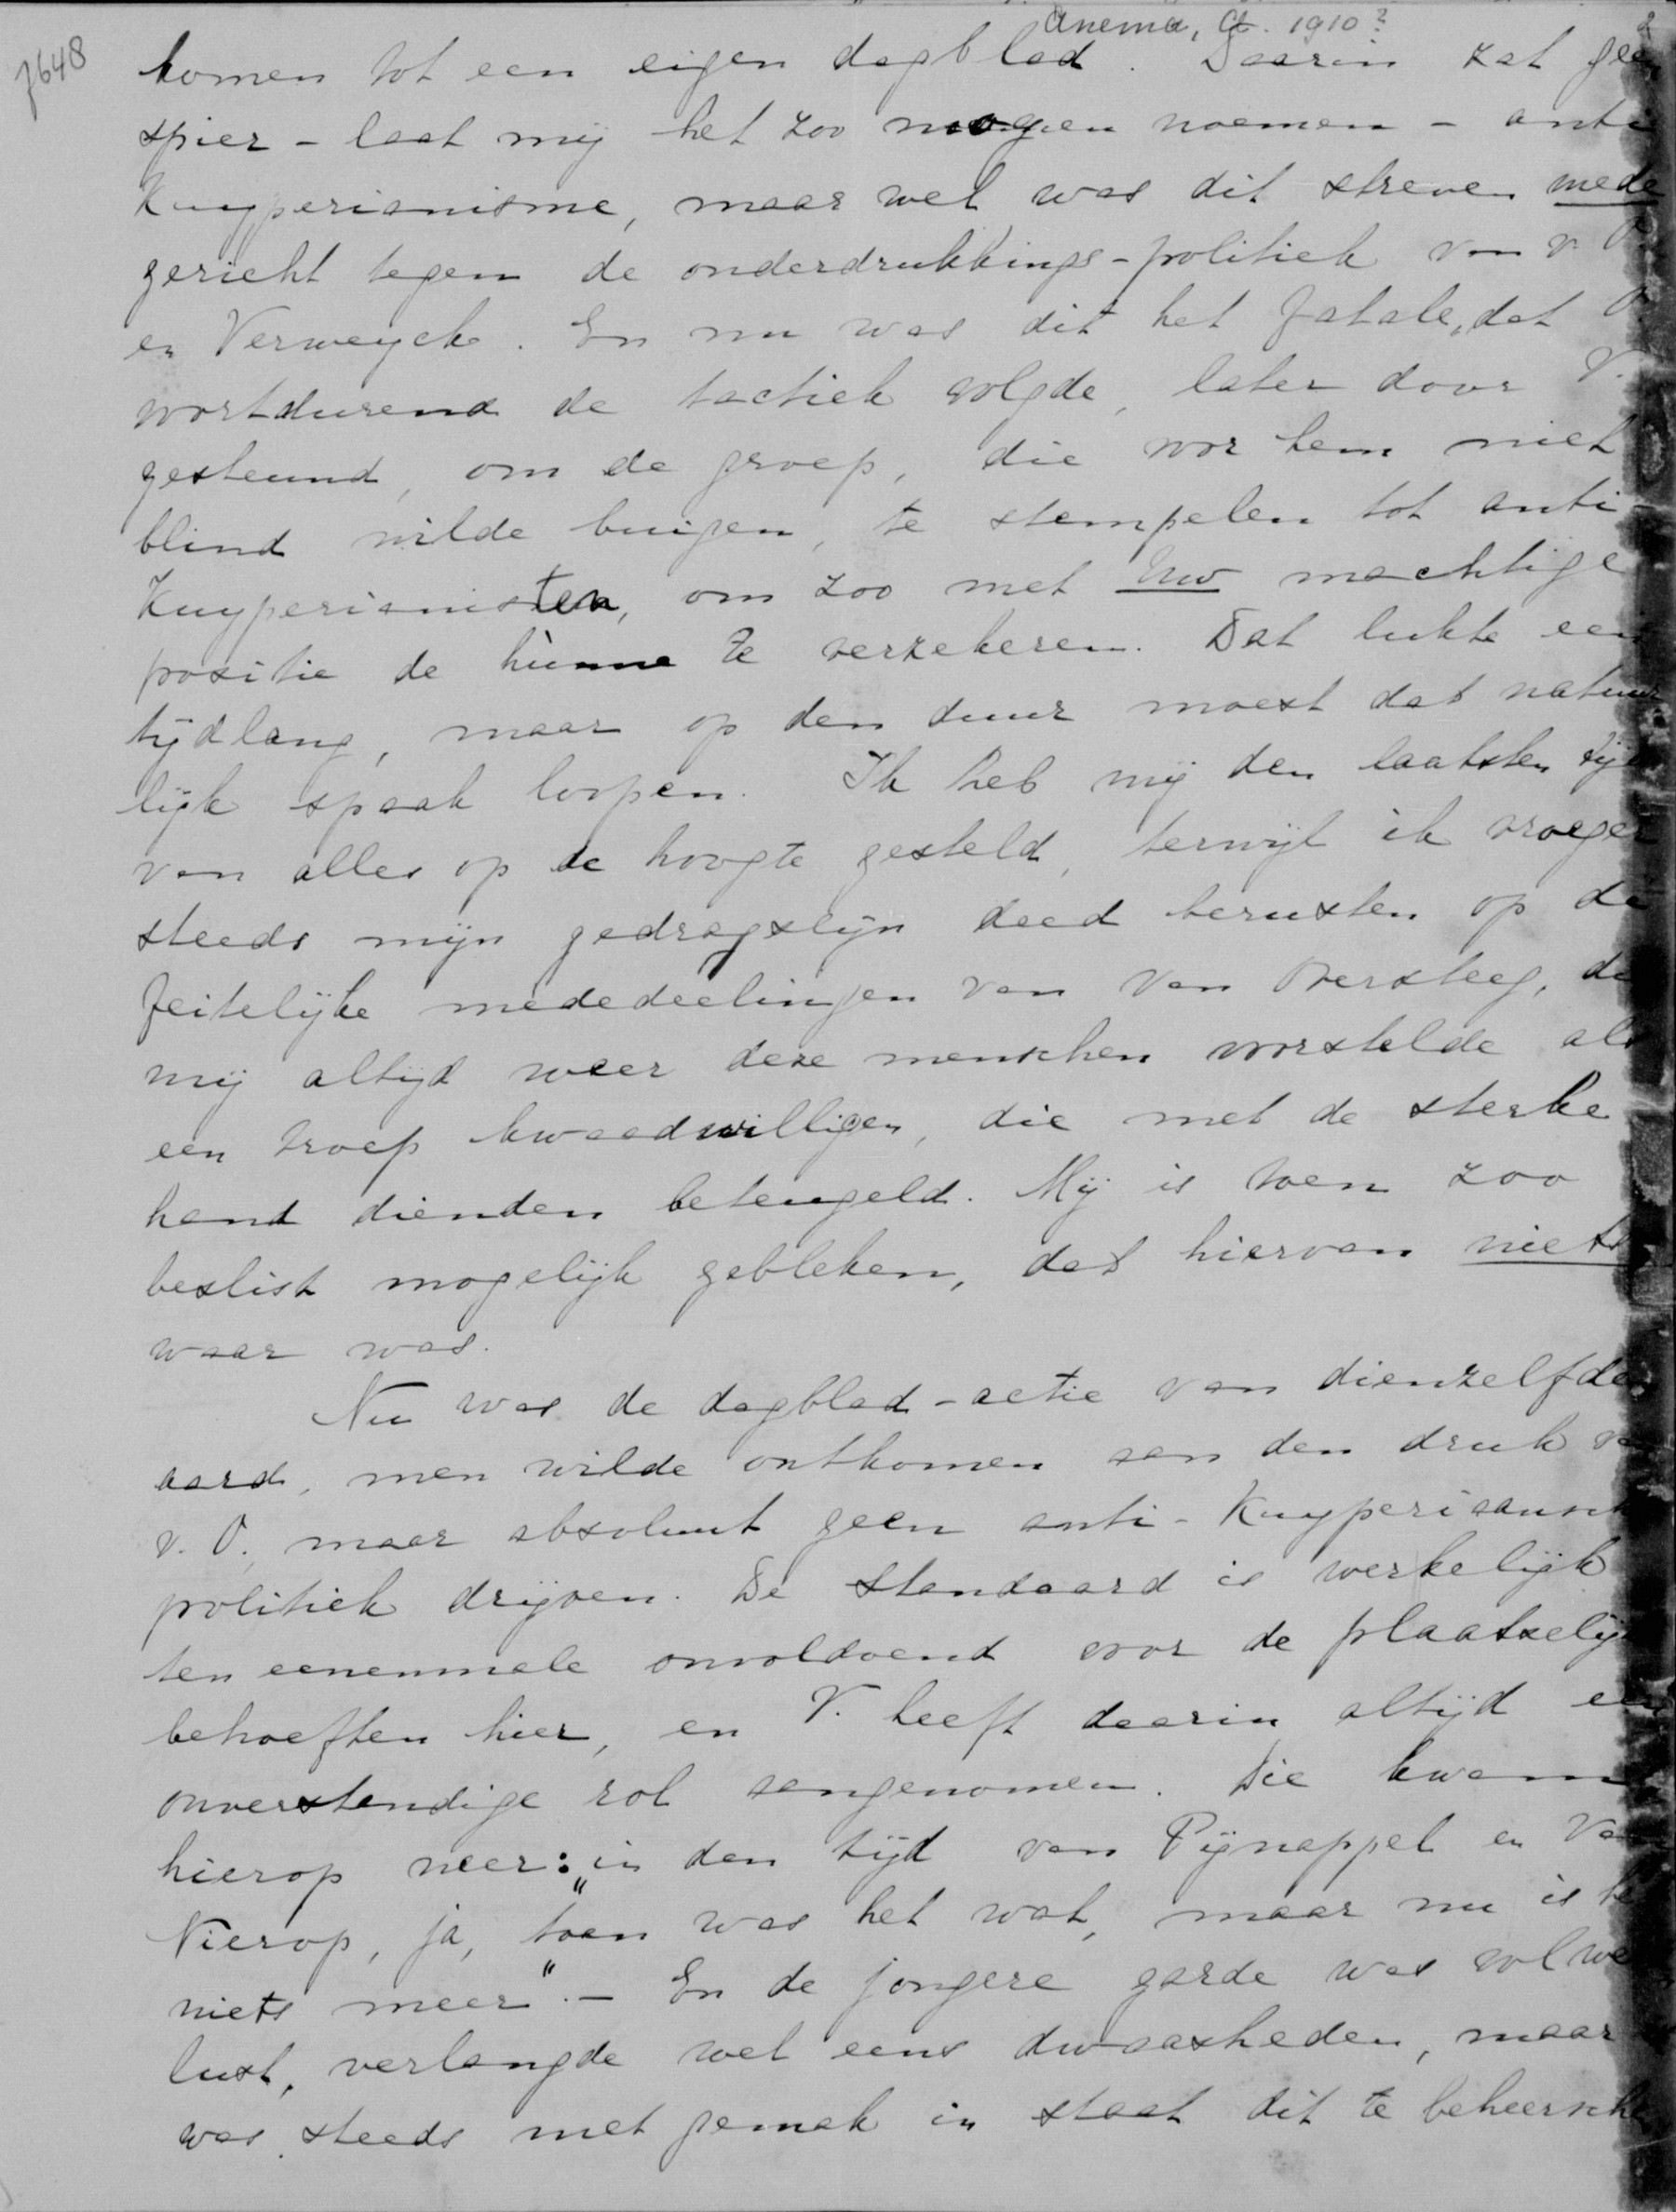 Anema, A. 1910?
7648
komen tot een eigen dagblad. Daarin zat geen
spier - laat mij het zoo mogen noemen - anti
Kuyperianisme, maar wel was dit streven mede
gericht tegen de onderdrukkings-politiek van v. O.
en Verweyck. En nu was dit het fatale, dat O.
voortdurend de tactiek volgde, later door V.
gesteund, om de groep, die voor hem niet
blind wilde buigen, te stempelen tot anti
Kuyperianisten, om zoo met Uw machtige
positie de hùnne te verzekeren. Dat lukte een
tijdlang, maar op den duur moest dat natuur
lijk spaak loopen. Ik heb mij den laatsten tijd
van alles op de hoogte gesteld, terwijl ik vroeger
steeds mijn gedragslijn deed berusten op de
feitelijke mededeelingen van Van Oversteeg, die
mij altijd weer deze menschen voorstelde als
een troep kwaadwilligen, die met de sterke
hand dienden beteugeld. Mij is toen zoo
beslist mogelijk gebleken, dat hiervan niets
waar was.
Nu was de dagblad-actie van dienzelfden
aard, men wilde ontkomen aan den druk van
v. O., maar absoluut geen anti-Kuyperiaansche
politiek drijven. De Standaard is werkelijk
ten eenenmale onvoldoend voor de plaatselijke
behoeften hier, en V. heeft daarin altijd een
onverstandige rol aangenomen. Die kwam
hierop neer: „in den tijd van Pijnappel en Van
Nierop, ja, toen was het wat, maar nu is het
niets meer". - En de jongere garde was vol
lust, verlangde wel eens dwaasheden, maar
was steeds met gemak in staat dit te beheerschen